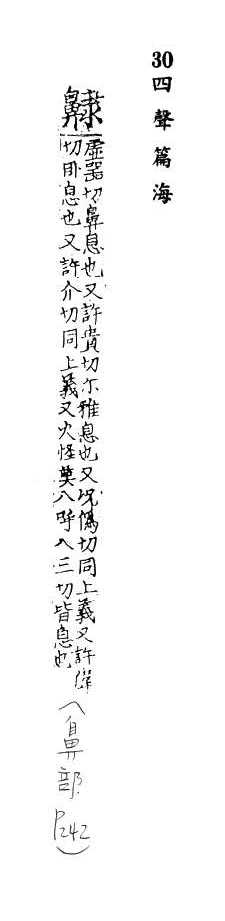 30四聲篇海
𪖪
虛器切鼻息也又許貴切尔雅息也又呪僞切同上義又許
切卧息也又許介切同上義又火怪莫八呼八三切皆息也
(鼻部P242)